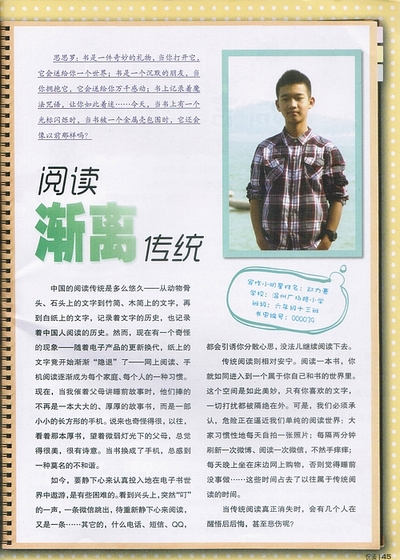 思思罗：书是一件奇妙的礼物，当你打开它，
它会送给你一个世界；书是一个沉默的朋友，当
你拥抱它，它会送给你万千感动；书上记录着魔
法咒语，让你如此着迷……今天，当书上有一个
光标闪烁时，当书被一个金属壳包围时，它还会
像以前那样吗？
阅读
渐离传统
学校：温州广场路小学
班级：六年级十三班
中国的阅读传统是多么悠久——从动物骨
头、石头上的文字到竹简、木简上的文字，再
到白纸上的文字，记录着文字的历史，也记录
着中国人阅读的历史。然而，现在有一个奇怪
的现象——随着电子产品的更新换代，纸上的
文字竟开始渐渐“隐退”了——网上阅读、手
机阅读逐渐成为每个家庭、每个人的一种习惯。
现在，当我催着父母讲睡前故事时，他们捧的
不再是一本大大的、厚厚的故事书，而是一部
小小的长方形的手机。说来也奇怪得很，以往，
看着那本厚书，望着微弱灯光下的父母，总觉
得很美，很有诗意。当书换成了手机，总感到
一种莫名的不和谐。
如今，要静下心来认真投入地在电子书世
界中遨游，是有些困难的。看到兴头上，突然“叮”
的一声，一条微信跳出，待重新静下心来阅读，
又是一条……其它的，什么电话、短信、QQ，
都会引诱你分散心思，没法儿继续阅读下去。
传统阅读则相对安宁。阅读一本书，你
就如同进入到一个属于你自己和书的世界里。
这个空间是如此美妙，只有你喜爱的文字，
一切打扰都被隔绝在外。可是，我们必须承
认，危险正在逼近我们单纯的阅读世界：大
家习惯性地每天自拍一张照片；每隔两分钟
刷新一次微博，阅读一次微信，不然手痒痒；
每天晚上坐在床边网上购物，否则觉得睡前
没事做……这些时间占去了以往属于传统阅
读的时间。
当传统阅读真正消失时，会有几个人在
醒悟后后悔，甚至悲伤呢？
45